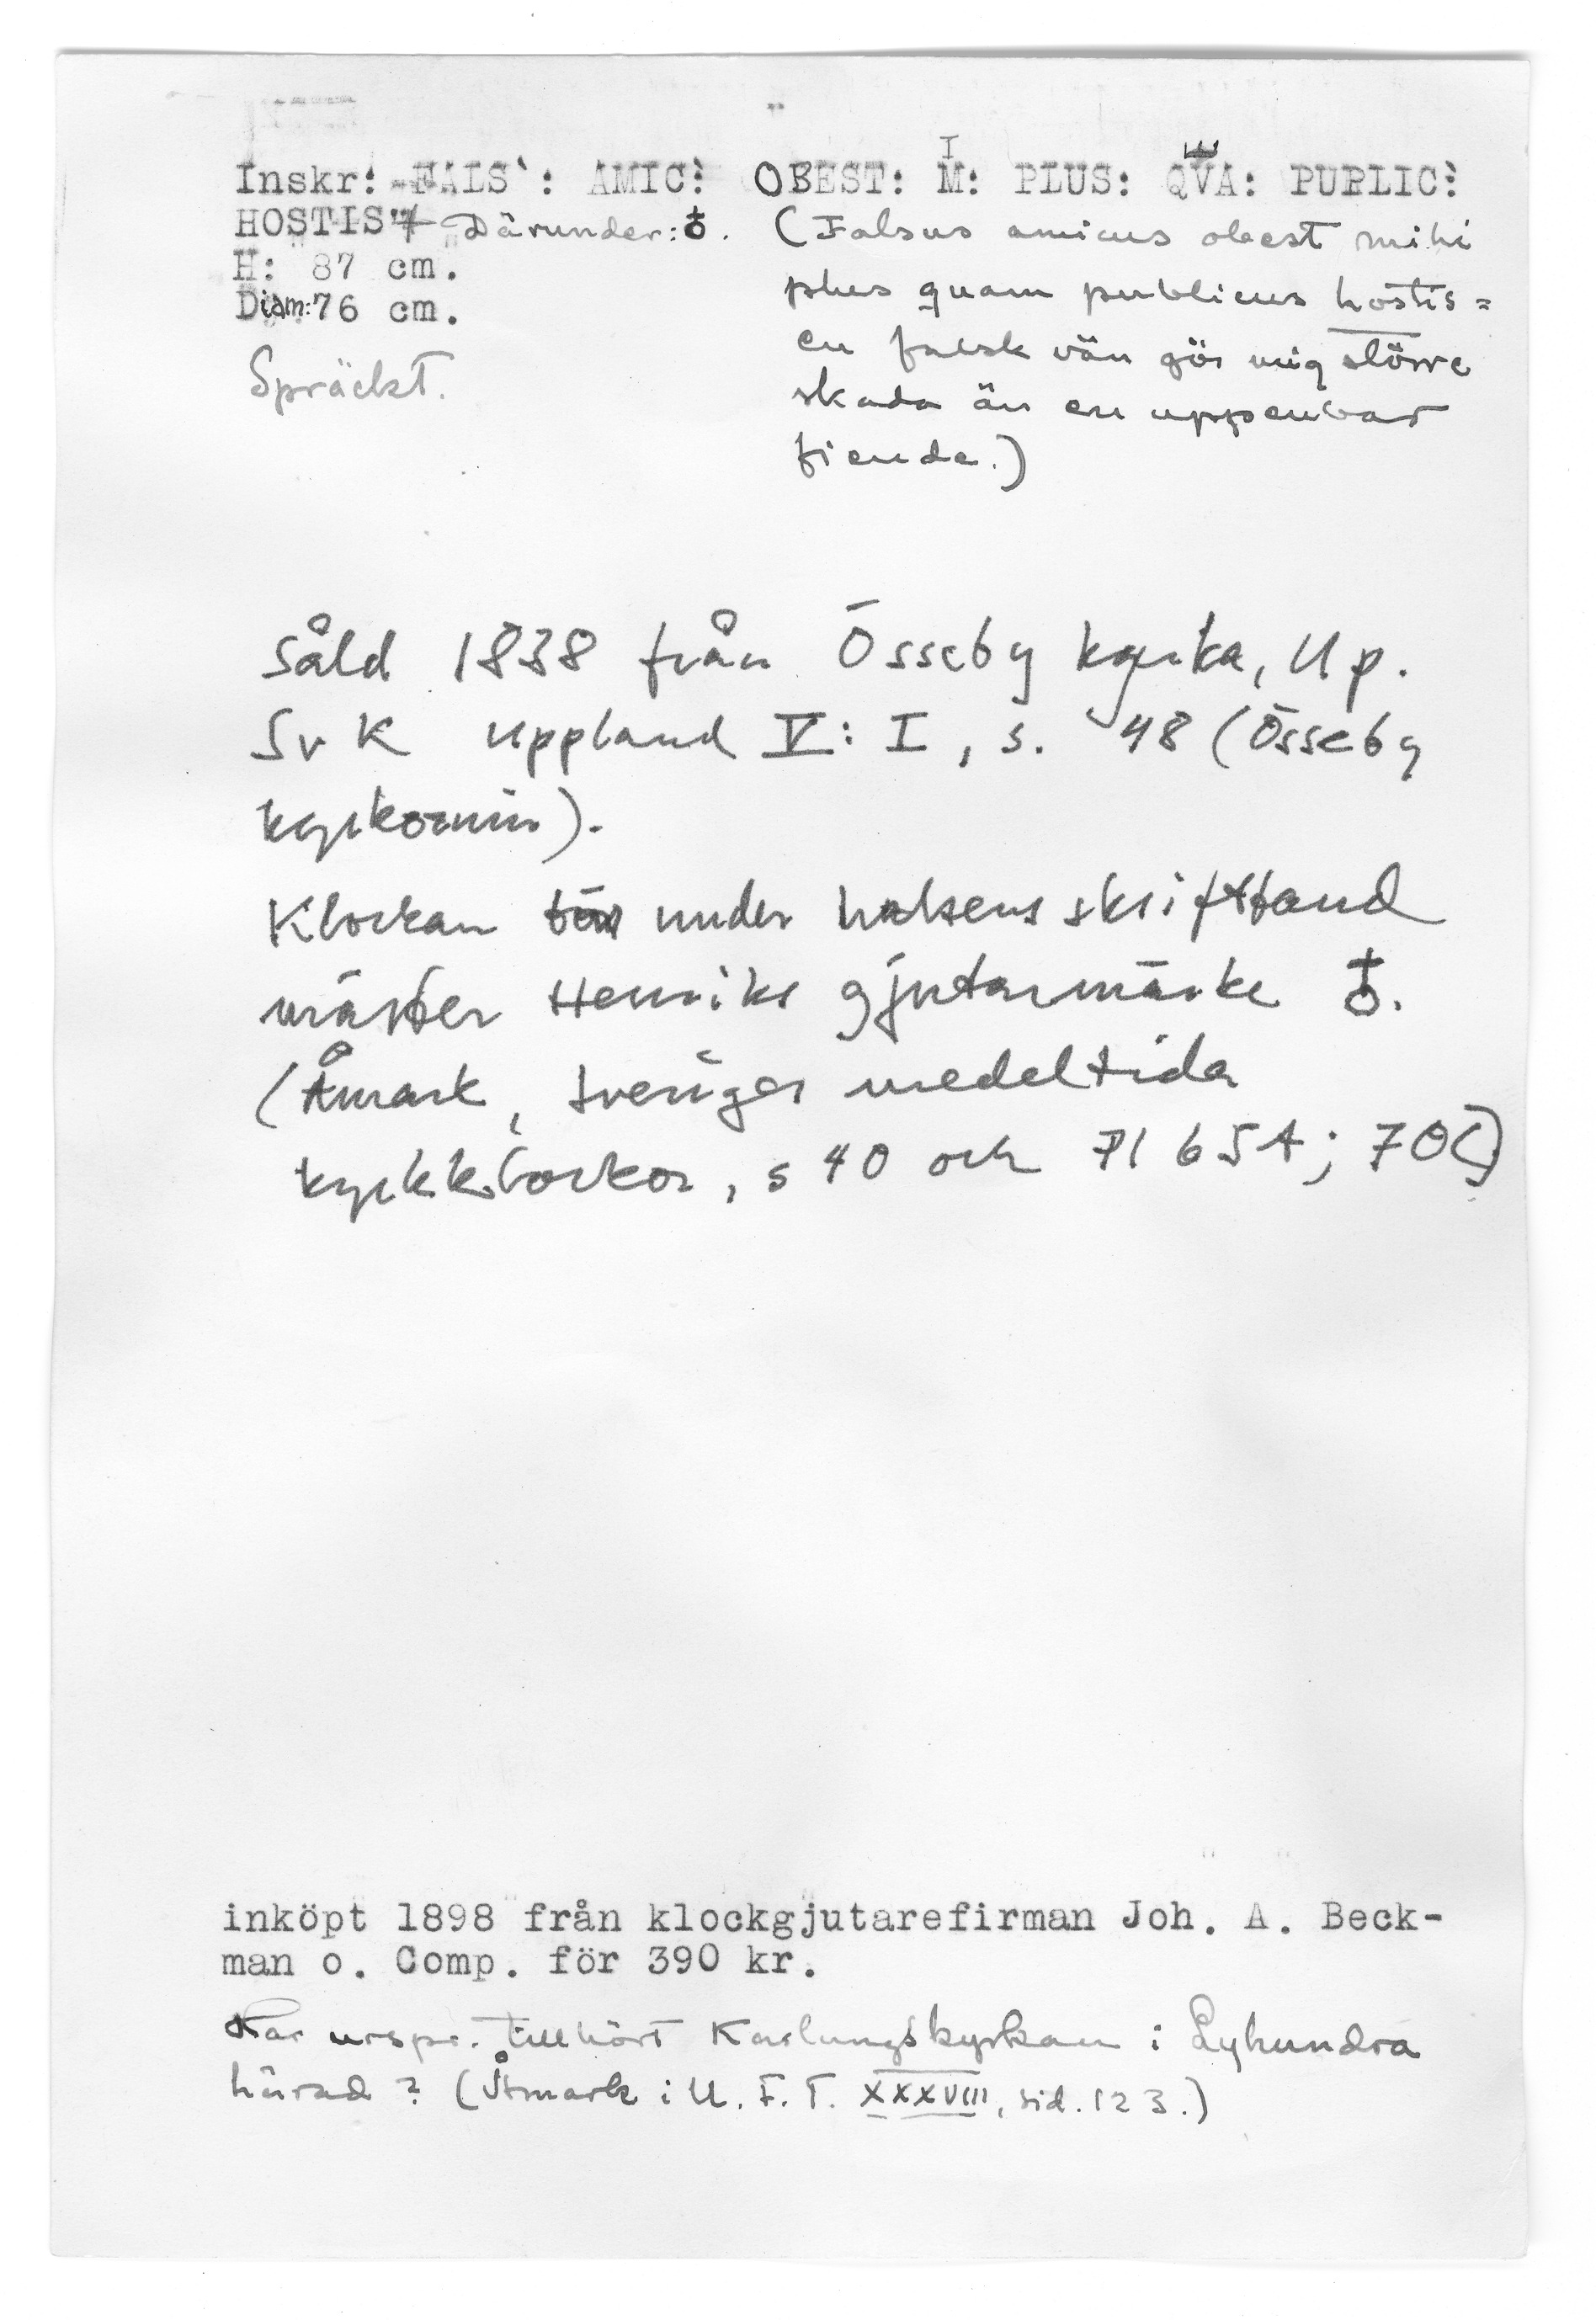 Inskr: "FALS': AMIC: OBEST: M: PLUS: QVA: PUBLIC:
HOSTIS" Därunder: ♁. (Falsus amicus obest mihi
H: 87 cm. plus quam publicus hostis =
Diam: 76 cm. en falsk vän gör mig större
Spräckt. skada än en uppenbar
fiende.)
Såld 1838 från Össeby kyrka, Up.
Sv K Uppland V: I, s. 48 (Össeby
kyrkoruin).
Klockan bär under halsens skriftband
mäster Henriks gjutarmärke ♁.
(Åmark, Sveriges medeltida
kyrkklockor, s 40 och Pl 65A; 70C)
inköpt 1898 från klockgjutarefirman Joh. A. Beck-
man o. Comp. för 390 kr.
Har urspr. tillhört Karlungskyrkan i Lyhundra
härad? (Åmark i U. F. T. XXXVIII, sid. 123.)